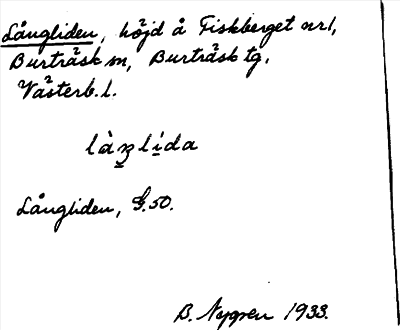 Långliden, höjd å Fiskberget nr 1,
Burträsk sn, Burträsk tg.
Västerb. l.
làŋlida
Långliden, G. 50.
B. Nygren 1933.